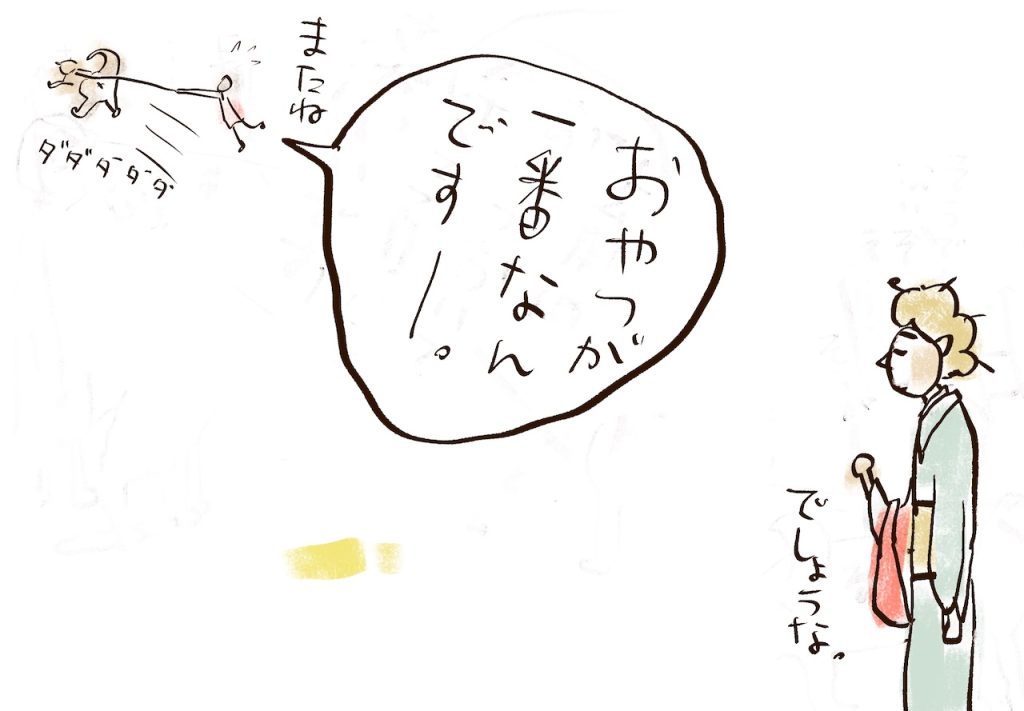 おやつが
一番なん
ですー。
またね
ダダダダダ
でしょうな。